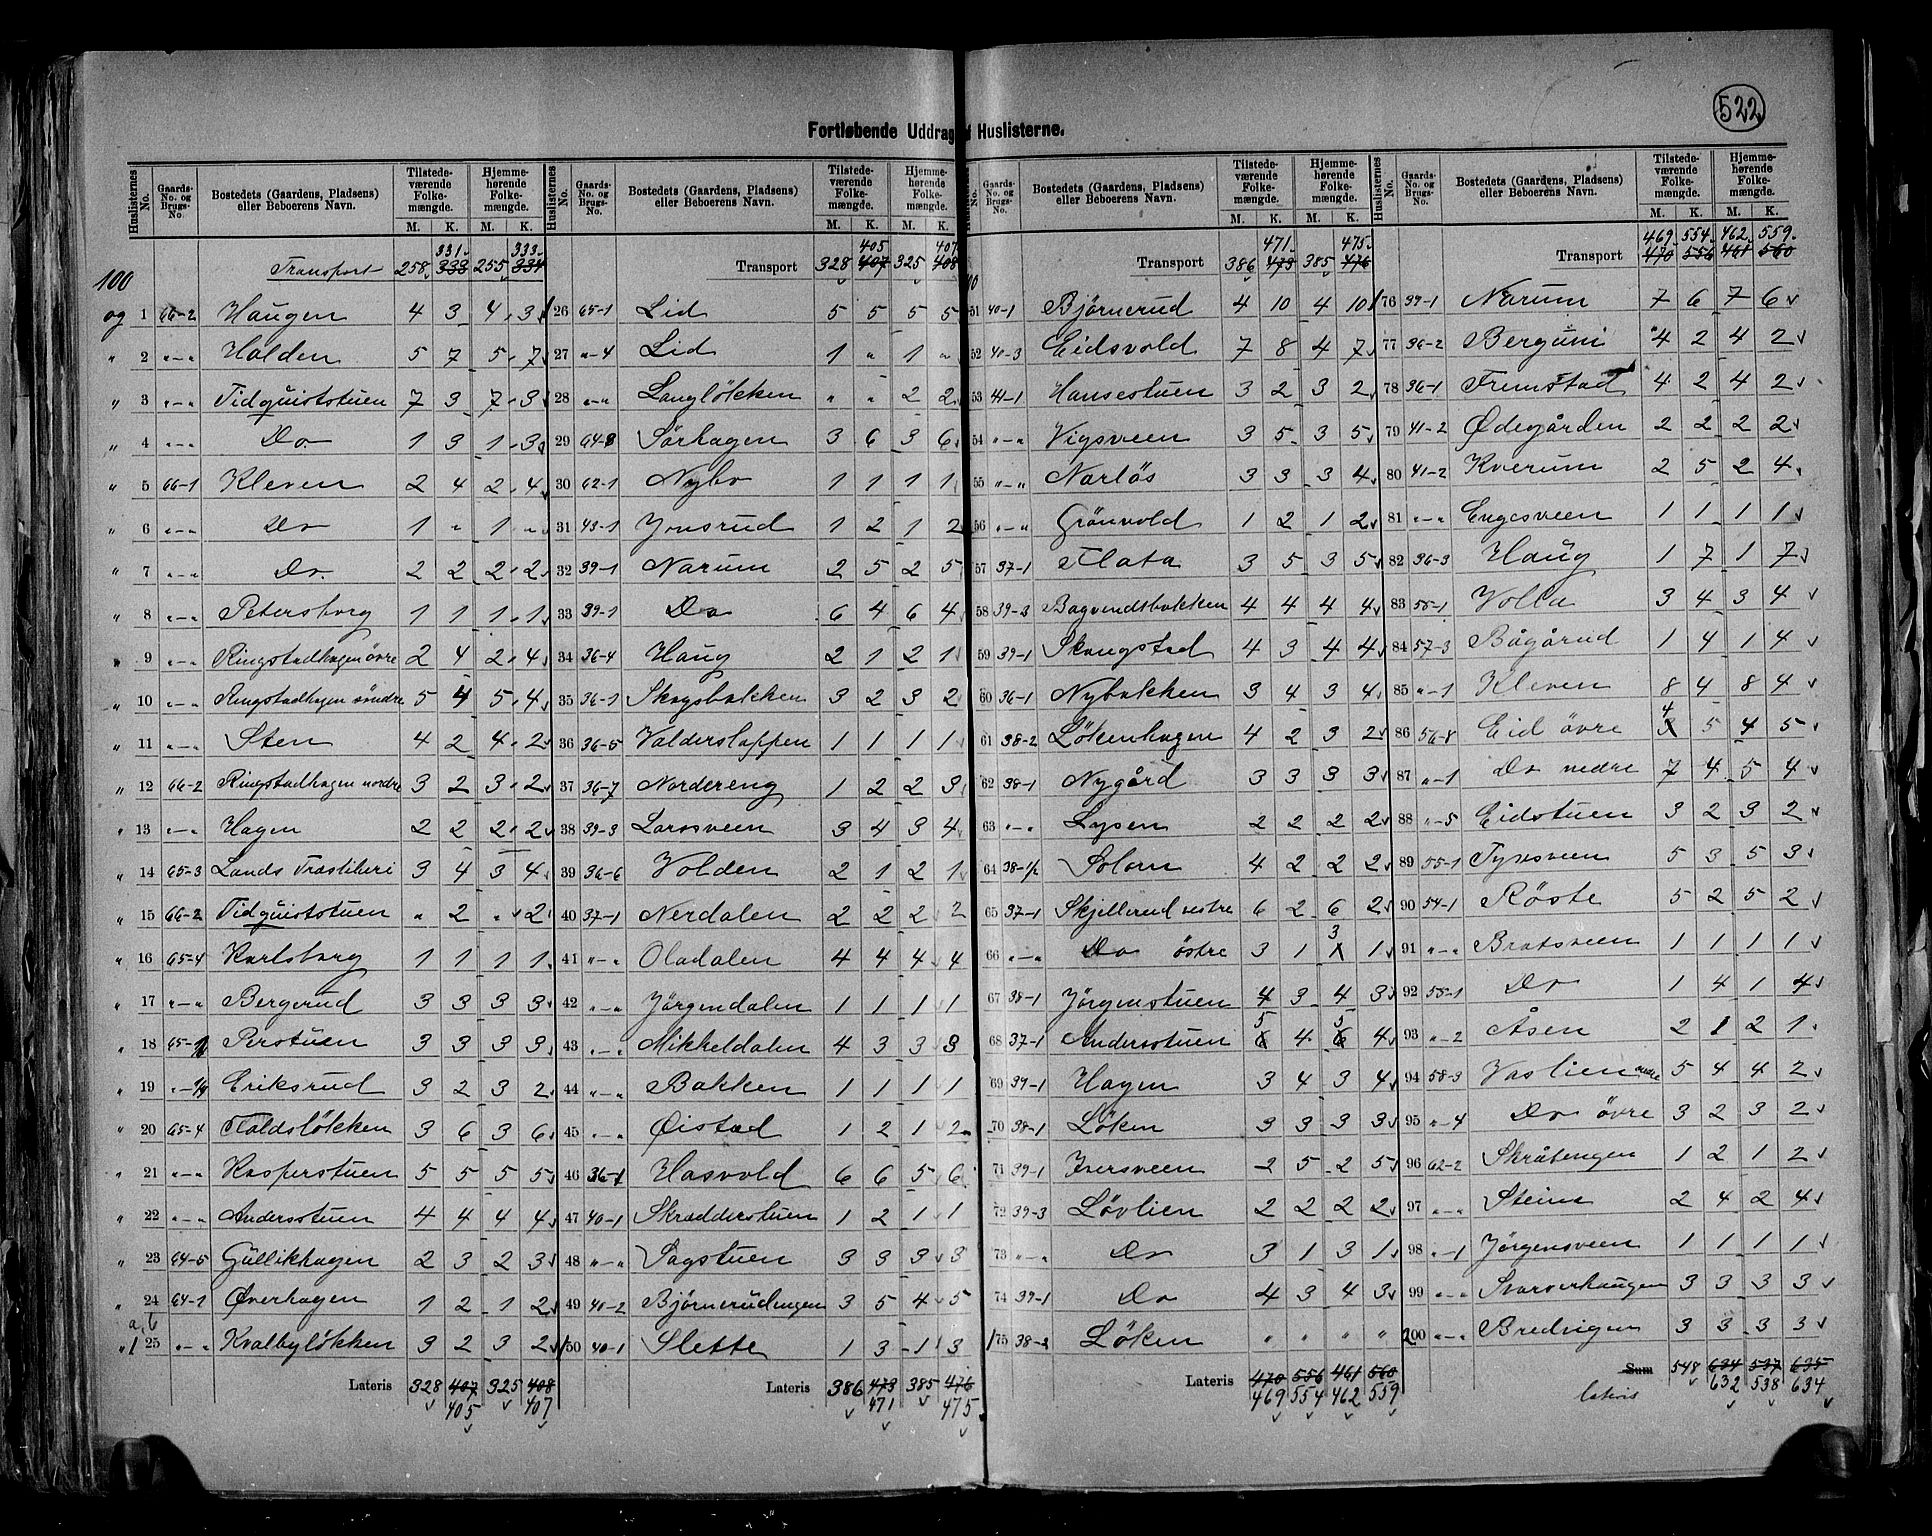 522
Fortløbende Uddrag af Huslisterne.
Huslisternes No. | Gaards-No. og Brugs-No. | Bostedets (Gaardens, Pladsens) eller Beboerens Navn. | Tilstedeværende Folkemængde. M. K. | Hjemmehørende Folkemængde. M. K.
331. 333.
Transport 258 333 255 334
100
og 1 66-2 Haugen 4 3 4 3
" 2 "-" Halden 5 7 5 7
" 3 "-" Tidquiststuen 7 3 7 3
" 4 "-" Do 1 3 1 3
" 5 66-1 Kleven 2 4 2 4
" 6 "-" Do 1 " 1 "
" 7 "-" Do. 2 2 2 2
" 8 "-" Petersborg 1 1 1 1
" 9 "-" Ringstadhagen övre 2 4 2 4
" 10 "-" Ringstadhagen söndre 5 4 5 4
" 11 "-" Sten 4 2 4 2
" 12 66-2 Ringstadhagen nordre 3 2 3 2
" 13 "-" Hagen 2 2 2 2
" 14 65-3 Lands Træsliberi 3 4 3 4
" 15 66-2 Tidquiststuen " 2 " 2
" 16 65-4 Karlsborg 1 1 1 1
" 17 "-" Bergerud 3 3 3 3
" 18 65- Perstuen 3 3 3 3
" 19 Eriksrud 3 2 3 2
" 20 65-4 Faldsløkken 3 6 3 6
" 21 "-" Kasperstuen 5 5 5 5
" 22 "-" Andersstuen 4 4 4 4
" 23 64-5 Gullikhagen 2 3 2 3
" 24 64-1 Øverhagen 1 2 1 2
a, b
" 1 25 "-" Kvalbyløkken 3 2 3 2
Lateris 328 407 325 408
405 407
Huslisternes No. | Gaards-No. og Brugs-No. | Bostedets (Gaardens, Pladsens) eller Beboerens Navn. | Tilstedeværende Folkemængde. M. K. | Hjemmehørende Folkemængde. M. K.
405 407
Transport 328 407 325 408
26 65-1 Lid 5 5 5 5
27 "-4 Lid 1 " 1 "
28 "-" Langløkken " " 2 2
29 64-8 Sørhagen 3 6 3 6
30 62-1 Nybo 1 1 1 1
31 43-1 Jonsrud 1 2 1 2
32 39-1 Narum 2 5 2 5
33 39-1 Do 6 4 6 4
34 36-4 Haug 2 1 2 1
35 36-1 Skogsbakken 3 2 3 2
36 36-5 Valderslappen 1 1 1 1
37 36-7 Nordereng 1 2 2 3
38 39-3 Larssveen 3 4 3 4
39 36-6 Volden 2 1 2 1
40 37-1 Nerdalen 2 2 2 2
41 "-" Oladalen 4 4 4 4
42 "-" Jörgendalen 1 1 1 1
43 "-" Mikkeldalen 4 3 3 3
44 "-" Bakken 1 1 1 1
45 "-" Øistad 1 2 1 2
46 36-1 Hasvold 6 6 5 6
47 40-1 Skrædderstuen 1 2 1 1
48 "-" Sagstuen 3 3 3 3
49 40-2 Bjørnerudengen 3 5 4 5
50 40-1 Slette 1 3 1 3
Lateris 386 473 385 476
471 475
Huslisternes | Gaards-No. og Brugs-No. | Bostedets (Gaardens, Pladsens) eller Beboerens Navn. | Tilstedeværende Folkemængde. M. K. | Hjemmehørende Folkemængde. M. K.
471. 475.
Transport 386 473 385 476
51 40-1 Bjørnerud 4 10 4 10
52 40-3 Eidsvold 7 8 4 7
53 41-1 Hansestuen 3 2 3 2
54 "-" Vigsveen 3 5 3 5
55 "-" Narløs 3 3 3 4
56 "-" Grönvold 1 2 1 2
57 37-1 Flata 3 5 3 5
58 39-3 Bagvendsbakken 4 4 4 4
59 39-1 Skaugstad 4 3 4 4
60 36-1 Nybakken 3 4 3 4
61 38-2 Løkenhagen 4 2 3 2
62 38-1 Nygård 3 3 3 3
63 "-" Lysen 2 2 2 2
64 38-1/2 Solom 4 2 2 2
65 37-1 Skjellerud vestre 6 2 6 2
66 "-" Do östre 3 1 3 1
67 38-1 Jörgenstuen 4 3 4 3
68 37-1 Andersstuen 5 4 5 4
69 39-1 Hagen 3 4 3 4
70 38-1 Løken 3 3 3 3
71 39-1 Iversveen 2 5 2 5
72 39-3 Løvlien 2 2 2 2
73 "-" Do 3 1 3 1
74 39-1 Do 4 3 4 3
75 38-2 Løken " " " "
Lateris 470 556 461 560
469 554 462 559
Huslisternes No. | Gaards-No. og Brugs-No. | Bostedets (Gaardens, Pladsens) eller Beboerens Navn. | Tilstedeværende Folkemængde. M. K. | Hjemmehørende Folkemængde. M. K.
469. 554. 462. 559.
Transport 470 556 461 560
76 39-1 Narum 7 6 7 6
77 36-2 Bergum 4 2 4 2
78 36-1 Fremstad 4 2 4 2
79 41-2 Ødegården 2 2 2 2
80 41-2 Kverum 2 5 2 4
81 "-" Engesveen 1 1 1 1
82 36-3 Haug 1 7 1 7
83 58-1 Volla 3 4 3 4
84 57-3 Bågårud 1 4 1 4
85 "-1 Kleven 8 4 8 4
86 56-8 Eid övre 4 5 4 5
87 "-1 Do nedre 7 4 5 4
88 "-5 Eidstuen 3 2 3 2
89 55-1 Tyksveen 5 3 5 3
90 54-1 Røste 5 2 5 2
91 "-" Bratsveen 1 1 1 1
92 58-1 Do 1 4 1 4
93 "-2 Åsen 2 1 2 1
94 58-3 Vaslien nedre 5 4 4 2
95 "-4 Do övre 3 2 3 2
96 62-2 Skråtengen 1 2 1 2
97 "-" Steine 2 4 2 4
98 "-1 Jörgensveen 1 1 1 1
99 "-" Svarverhaugen 3 3 3 3
200 "-" Bredvigen 3 3 3 3
Sum 548 634 537 635
Lateris 632 538 634